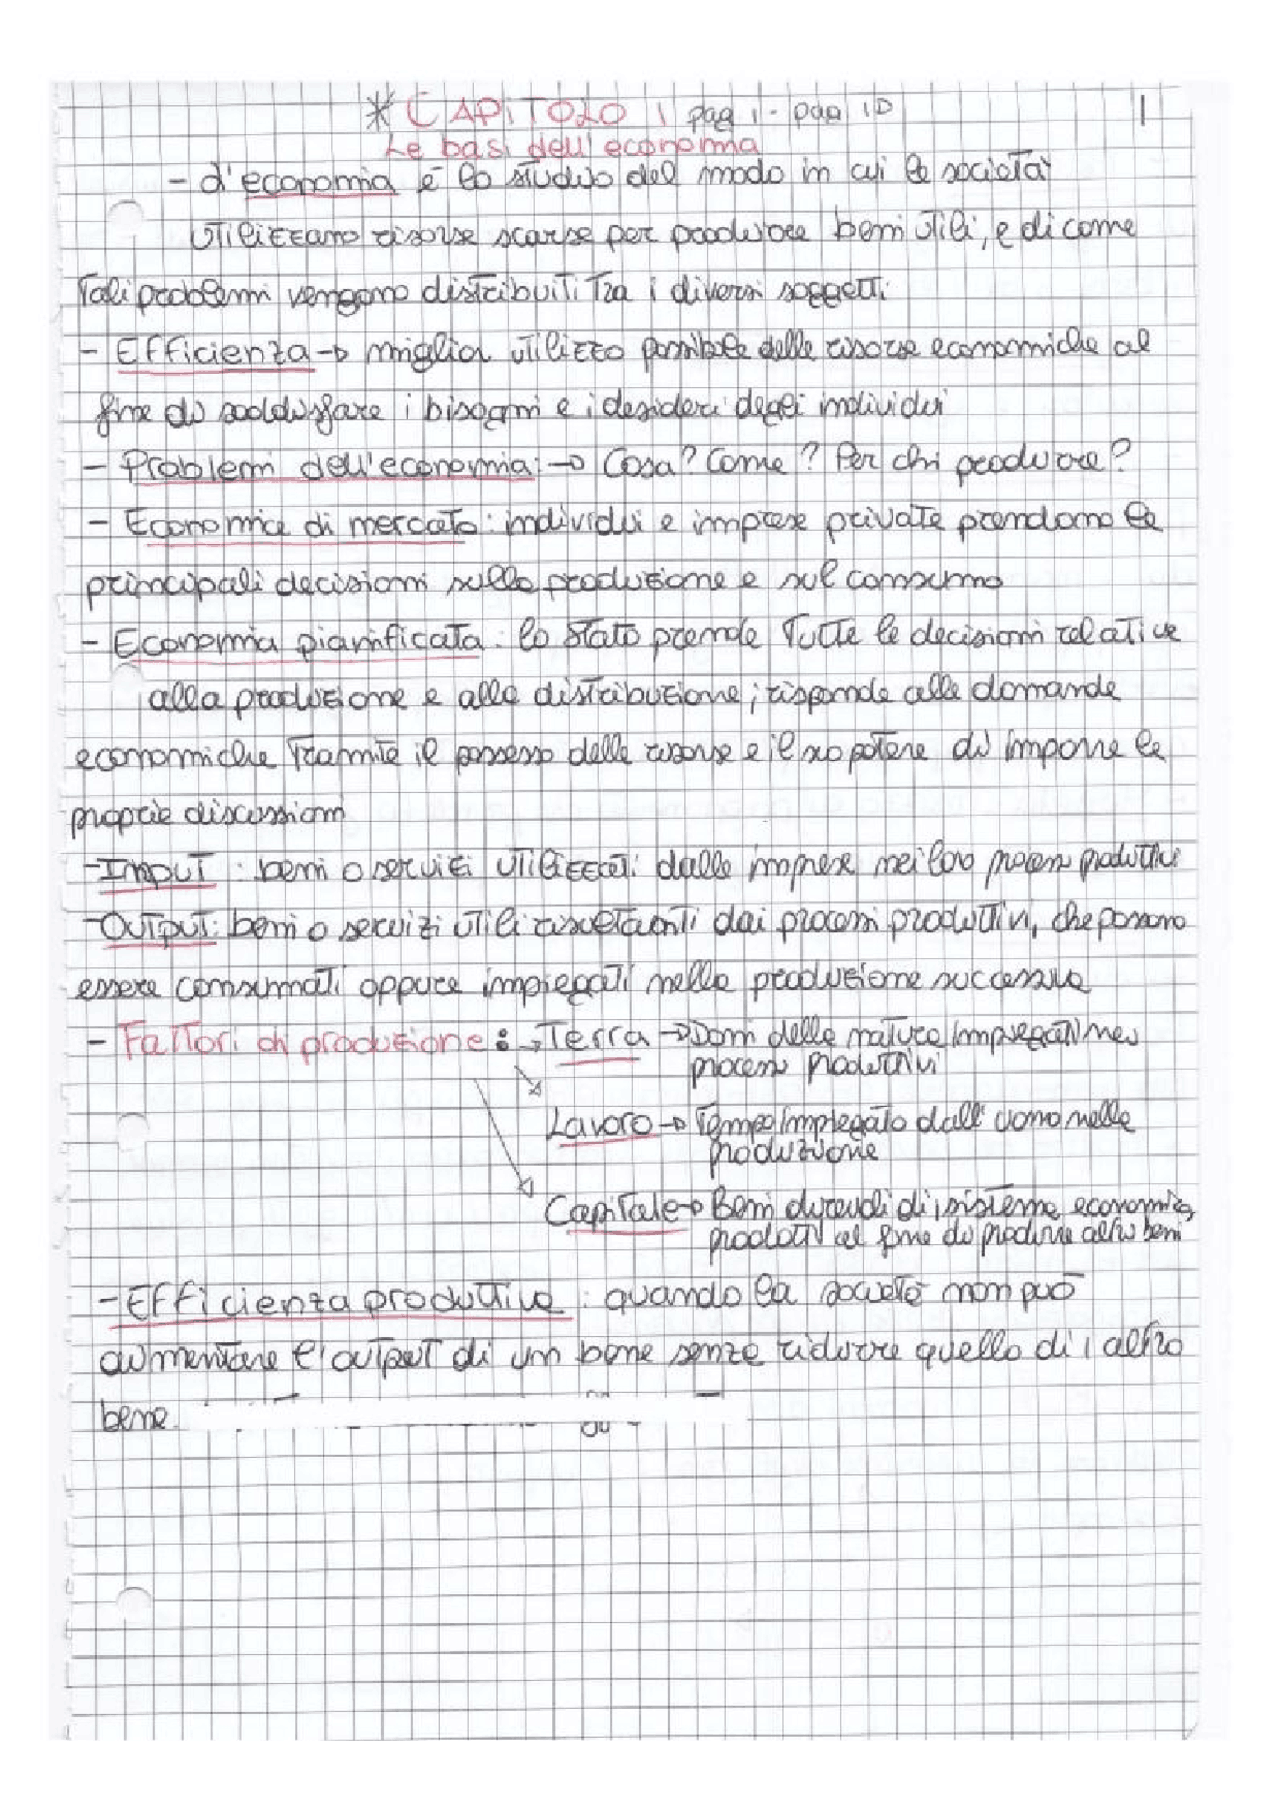 * CAPITOLO 1 pag 1 - pag 10
1
Le basi dell'economia
- L'economia è lo studio del modo in cui le società
utilizzano risorse scarse per produrre beni utili, e di come
tali problemi vengono distribuiti tra i diversi soggetti
- Efficienza → miglior utilizzo possibile delle risorse economiche al
fine di soddisfare i bisogni e i desideri degli individui
- Problemi dell'economia: → Cosa? Come? Per chi produrre?
- Economia di mercato: individui e imprese private prendono le
principali decisioni sulla produzione e sul consumo
- Economia pianificata: lo stato prende tutte le decisioni relative
alla produzione e alla distribuzione; risponde alle domande
economiche tramite il possesso delle risorse e il suo potere di imporre le
proprie discussioni
- Input: beni o servizi utilizzati dalle imprese nei loro processi produttivi
- Output: beni o servizi utili risultanti dai processi produttivi, che possono
essere consumati oppure impiegati nella produzione successiva
- Fattori di produzione: → Terra → Doni della natura impiegati nei
processi produttivi
Lavoro → Tempo impiegato dall'uomo nella
produzione
Capitale → Beni durevoli di sistema economico
prodotti al fine di produrre altri beni
- Efficienza produttiva: quando la società non può
aumentare l'output di un bene senza ridurre quello di 1 altro
bene.